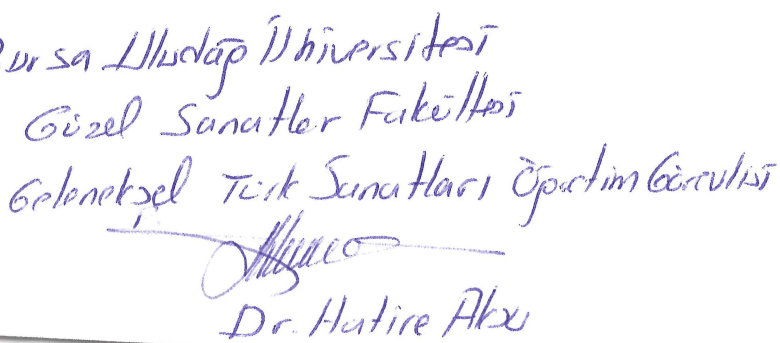 Bursa Uludağ Üniversitesi
Güzel Sanatlar Fakültesi
Geleneksel Türk Sanatları Öğretim Görevlisi
Dr. Hatice Aksu